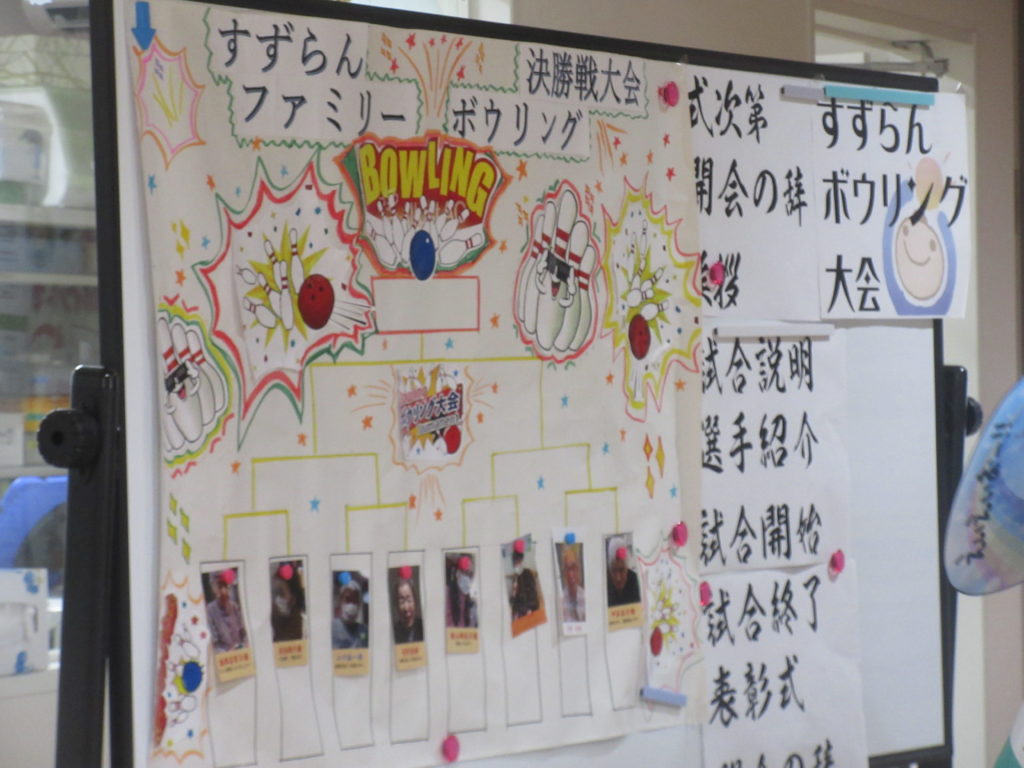 すずらん
ファミリー
決勝戦大会
ボウリング
BOWLING
ボウリング大会
式次第
開会の辞
挨拶
試合説明
選手紹介
試合開始
試合終了
表彰式
すずらん
ボウリング
大会